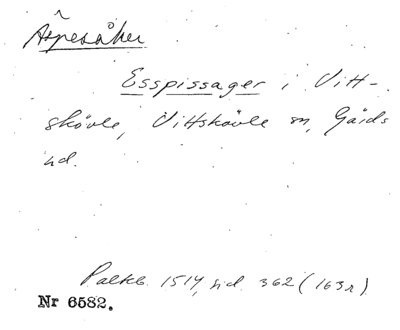 Äspesåker
Esspissager i Vitt-
skövle, Vittskövle sn, Gärds
hd.
Palteb. 1514, sid. 362 (163r).
Nr 6582.